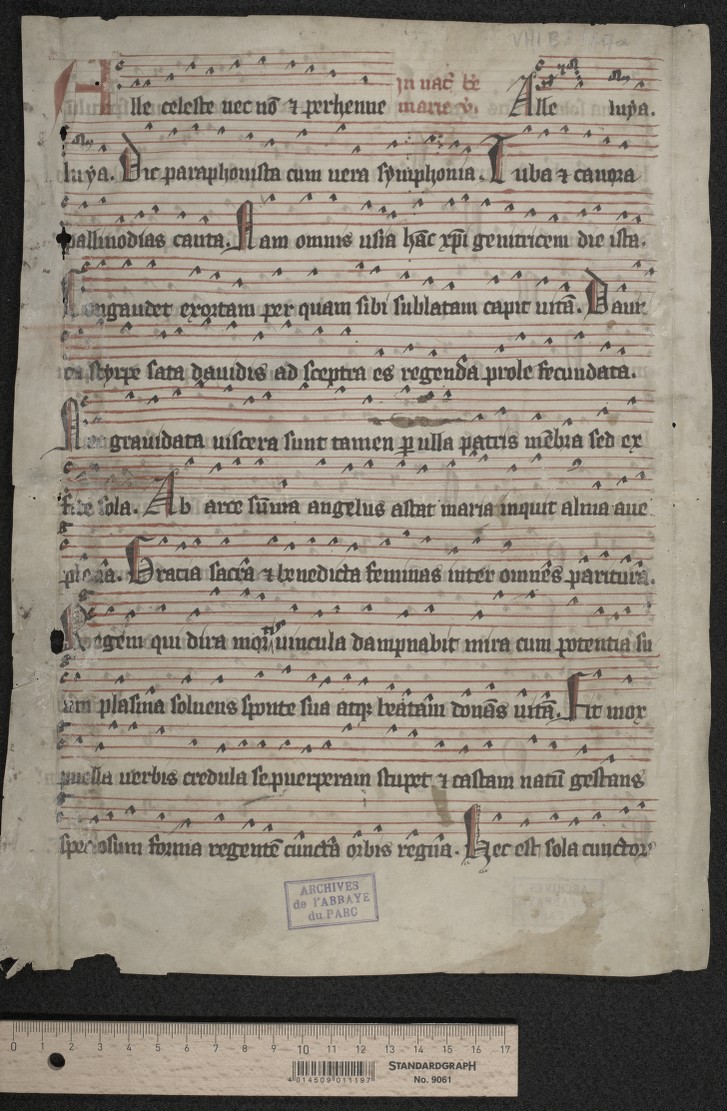 Alle celeste nec nō ⁊ perhenne in nat̄ bē marie v̄. Alle luya.
luya. Dic paraphonista cum uera symphonia. Tuba ⁊ canora
pallinodias canta. Nam omnis usia hāc xp̄i genitricem die ista.
Congaudet exortam per quam sibi sublatam capit uitā. Dauit
ca styrpe sata dauidis ad sceptra es regenda prole fecundata.
Nec grauidata uiscera sunt tamen ꝑ ulla patris mēbra sed ex
fide sola. Ab arce sūma angelus astat maria inquit alma aue
plena. Gracia sacra ⁊ benedicta feminas inter omnes paritura.
Regem qui dira mortis uincula dampnabit mira cum potentia su
um plasma soluens sponte sua atqꝫ beatam donās uitā. Fit mox
puella uerbis credula se puerperam stupet ⁊ castam natū gestans
speciosum forma regentē cuncta orbis regna. Hec est sola cunctorꝫ
ARCHIVES
de l'ABBAYE
du PARC
0 1 2 3 4 5 6 7 8 9 10 11 12 13 14 15 16 17
4 014509 011197
STANDARDGRAPH
No. 9061